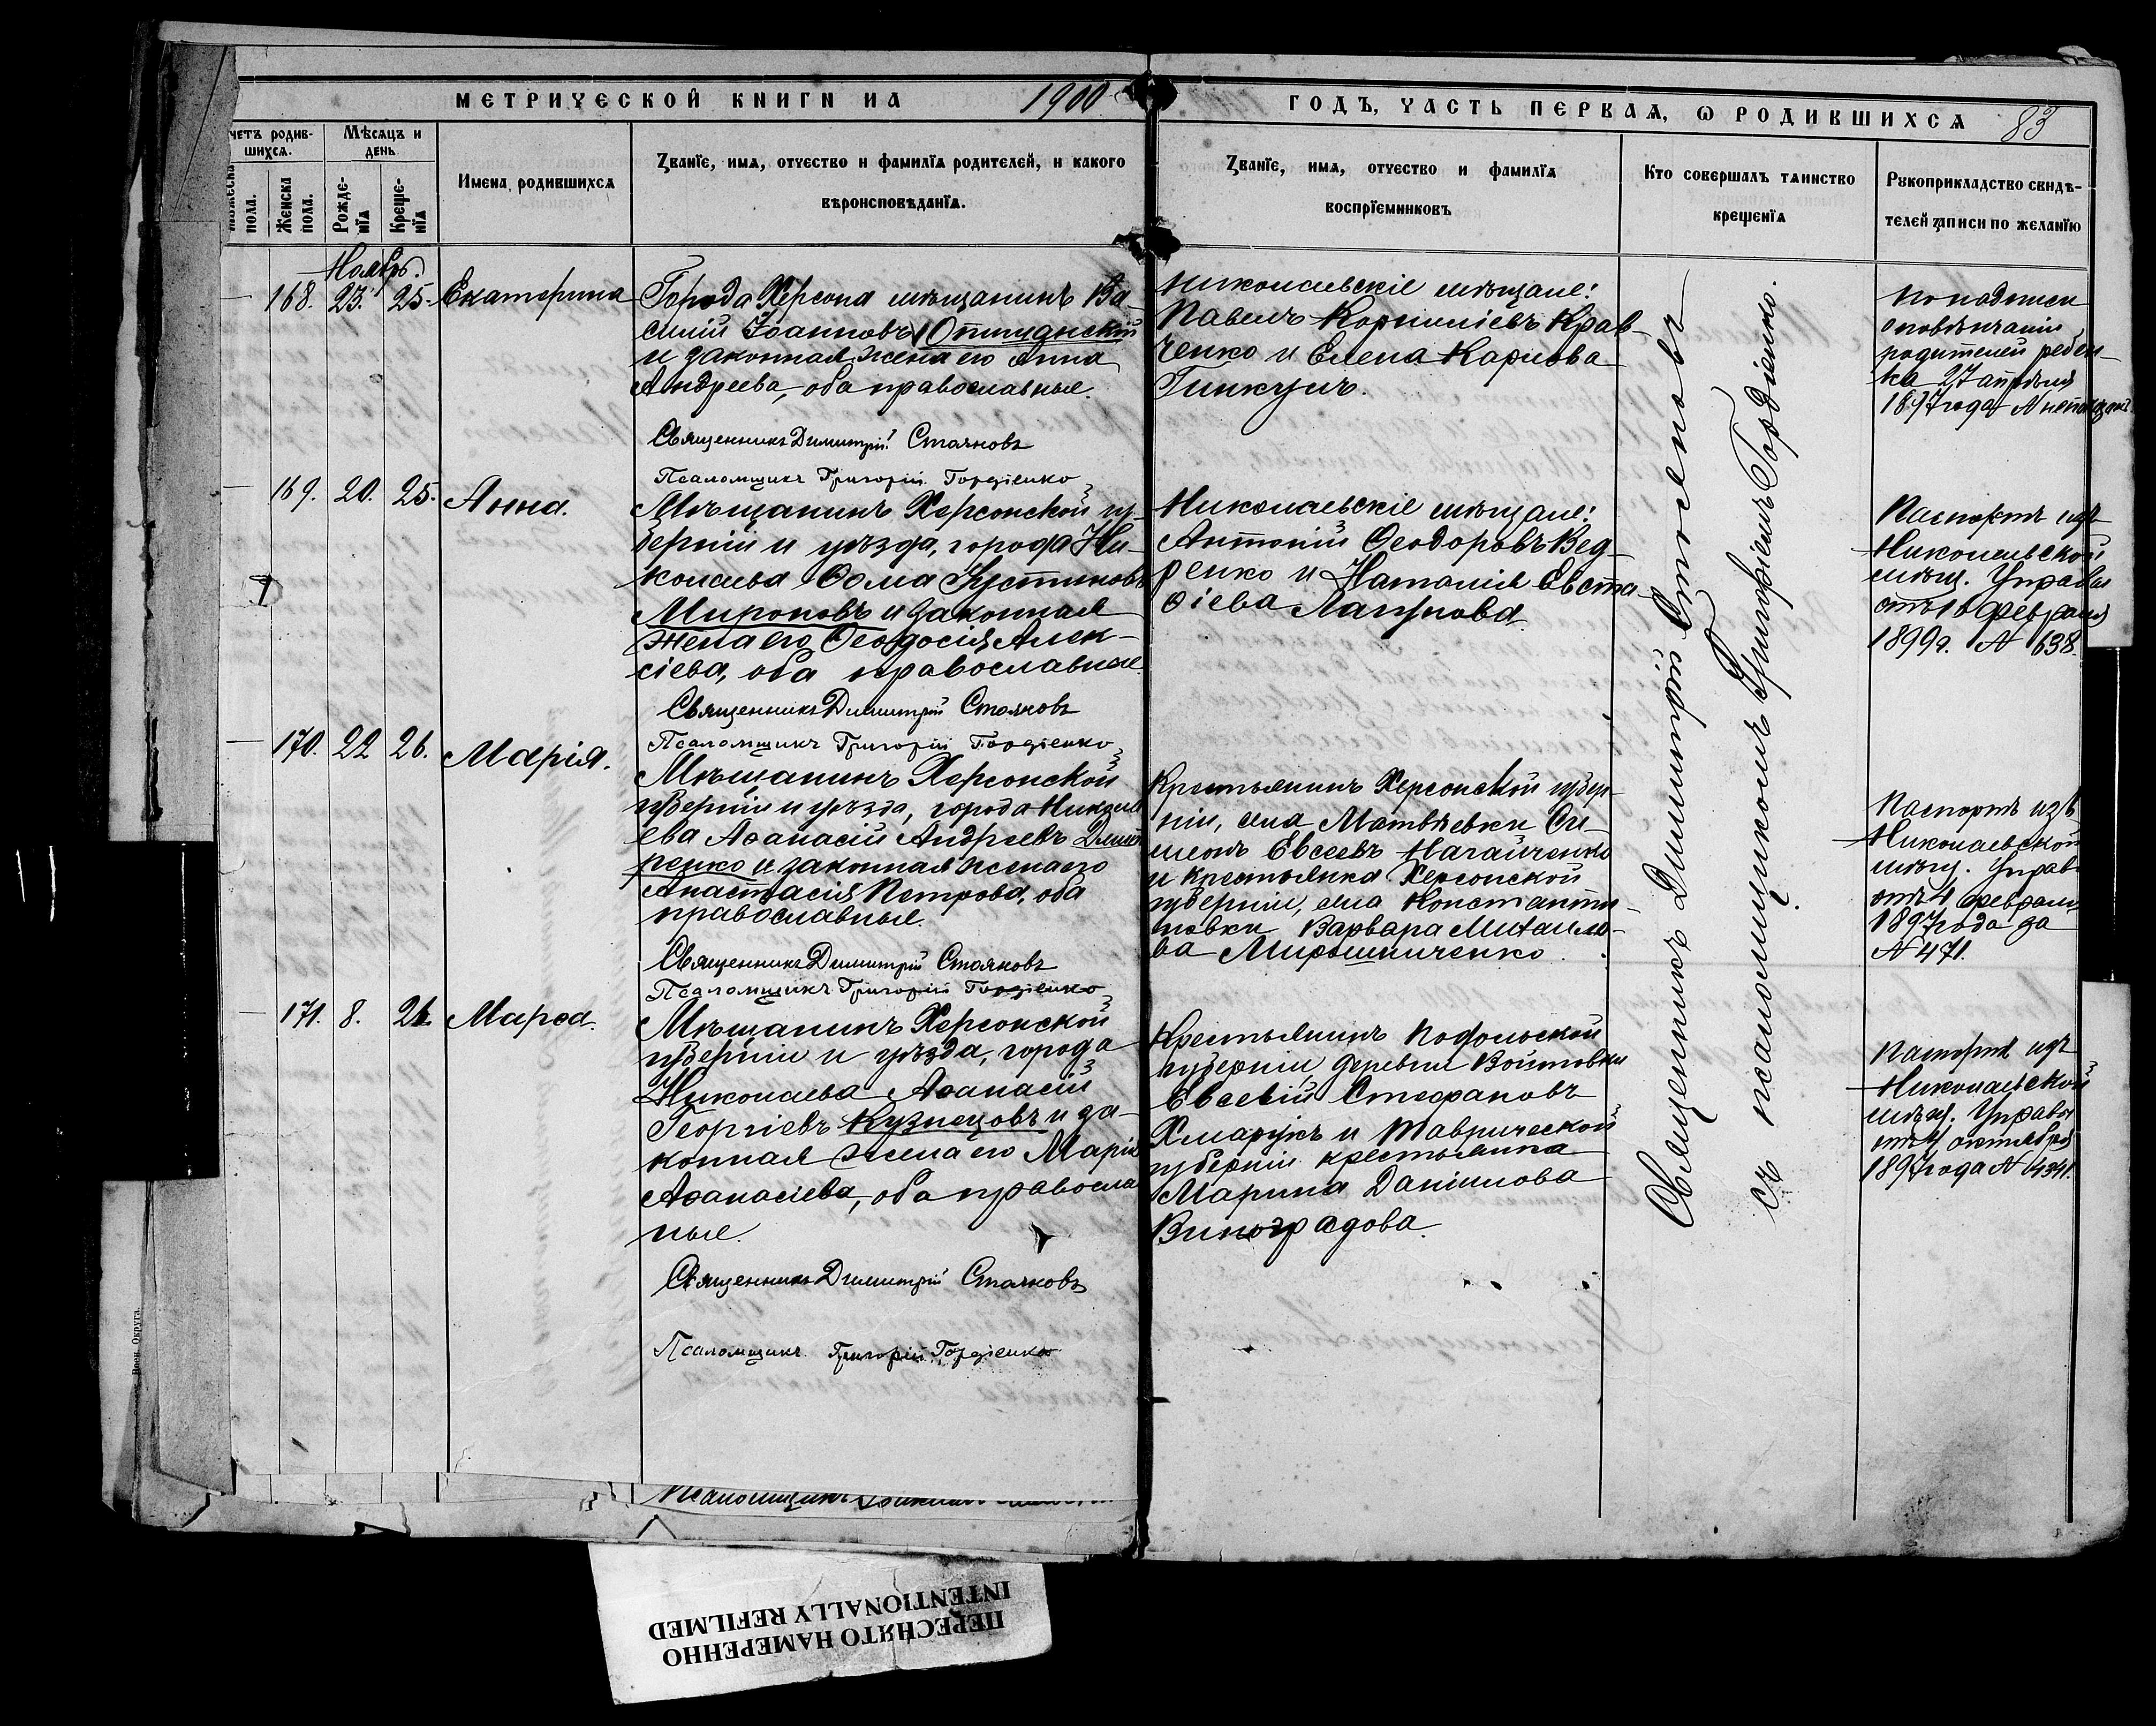 МЕТРИЧЕСКОЙ КНИГИ НА 1900
ГОДЪ, ЧАСТЬ ПЕРВАЯ, Ѡ РОДИВШИХСЯ 83
четъ родив-
шихся.
Мѣсяцъ и
день
пола.
Женска
пола.
Рожде-
нїя
Креще-
нїя
Имена родившихся
Званїе, имя, отчество и фамилїя родителей, и какого
вѣроисповѣданїя.
Званїе, имя, отчество и фамилїя
воспрїемниковъ
Кто совершалъ таинство
крещенїя
Рукоприкладство свидѣ-
телей записи по желанїю
Ноябрь.
168. 23. 25. Екатерина
Города Херсона мѣщанинъ Ва-
силій Іоанновъ
и законная жена его Анна
Андреева, оба православные.
Священникъ Димитрій Стояновъ
Псаломщикъ Григорій Гордіенко
Николаевскіе мѣщане:
Павелъ Корниліевъ Крав-
ченко и Елена Карпова
родителей ребен-
ка 27 апрѣля
1897 года
169. 20. 25. Анна.
Мѣщанинъ Херсонской гу-
берніи и уѣзда, города Ни-
колаева Ѳома Іустиновъ
Мироновъ и законная
жена его Ѳеодосія Алек-
сіева, оба православные.
Священникъ Димитрій Стояновъ
Псаломщикъ Григорій Гордіенко
Николаевскіе мѣщане:
Антоній Ѳеодоровъ Вед-
ренко и Наталія Евста-
ѳіева Лагунова
Паспортъ изъ
Николаевской
мѣщ. Управы
отъ 10 февраля
1899 г. № 638.
170. 22 26. Марія.
Мѣщанинъ Херсонской
губерніи и уѣзда, города Никола
ева Аѳанасій Андреевъ
ренко и законная жена его
Анастасія Петрова, оба
православные.
Священникъ Димитрій Стояновъ
Псаломщикъ Григорій Гордіенко
Крестьянинъ Херсонской губер-
ніи, села Матвѣевки Си-
меонъ Евсеевъ Нагайченко
и крестьянка Херсонской
губерніи, села Константи-
новки Варвара Михаило-
ва Мирошниченко
Паспортъ изъ
Николаевской
мѣщ. Управ.
отъ 4 февраля
1897 года за
№ 471.
171. 8. 26 Марѳа.
Мѣщанинъ Херсонской
губерніи и уѣзда, города
Николаева Аѳанасій
Георгіевъ Кузнецовъ и за-
конная жена его Марія
Аѳанасіева, оба правосла
ные.
Священникъ Димитрій Стояновъ
Псаломщикъ Григорій Гордіенко
Крестьянинъ Подольской
губерніи, деревни Войтовки
Евсевій Стефановъ
Хмарукъ и Таврической
губерніи крестьянка
Марина Даніилова
Виноградова.
Паспортъ изъ
Николаевской
мѣщ. Управы
отъ 4 октября
1897 года № 4341.
Священникъ Димитрій Стояновъ
съ псаломщикомъ Григоріемъ Гордіенко.
Псаломщикъ
Воен. Округа.
ПЕРЕСНЯТО НАМЕРЕННО
INTENTIONALLY REFILMED